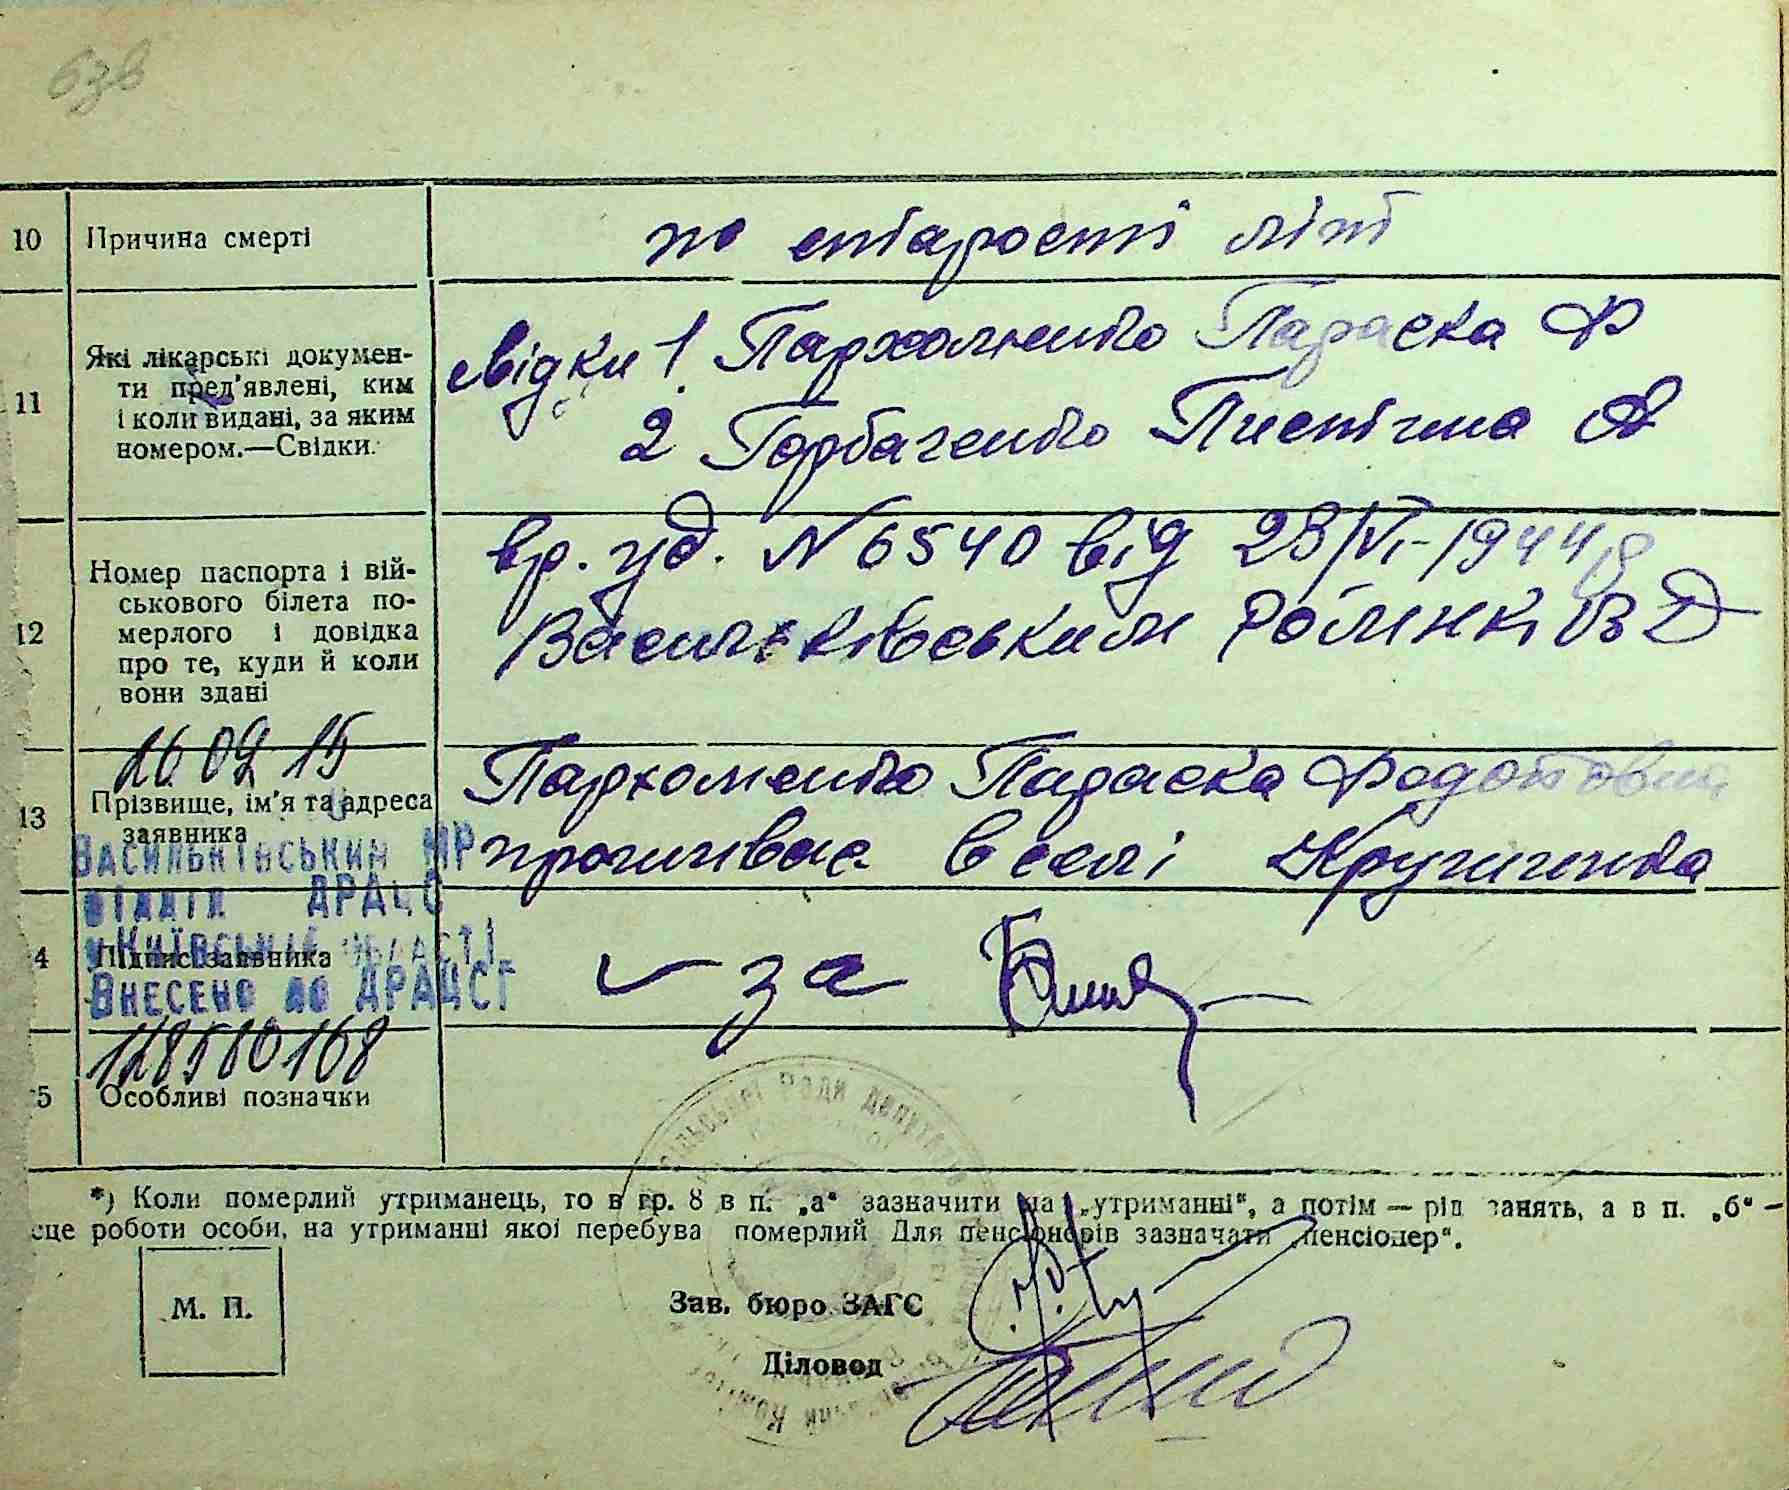 638
10 Причина смерті по старості літ
11 Які лікарські докумен-
ти пред'явлені, ким
і коли видані, за яким
номером.—Свідки.
свідки 1 Пархоменко Параска Ф
2 Горбаченко Пистіна А
12 Номер паспорта і вій-
ськового білета по-
мерлого і довідка
про те, куди й коли
вони здані
вр. уд. N 6540 від 28/VI-1944р
Васильківським Рай МНКВД
16 09 15
13 Прізвище, ім'я та адреса
заявника
Пархоменко Параска Федотовна
проживає в селі Кружичка
Васильківський МР
відділ ДРАЦС
у Київській області
Внесено до ДРАЦСГ
4 Підпис заявника за
128580168
5 Особливі позначки
*) Коли померлий утриманець, то в гр. 8 в п. „а“ зазначити на „утриманні“, а потім — рід занять, а в п. „б“ —
сце роботи особи, на утриманні якої перебува померлий Для пенсіонерів зазначати „пенсіонер“.
М. П.
Зав. бюро ЗАГС
Діловод